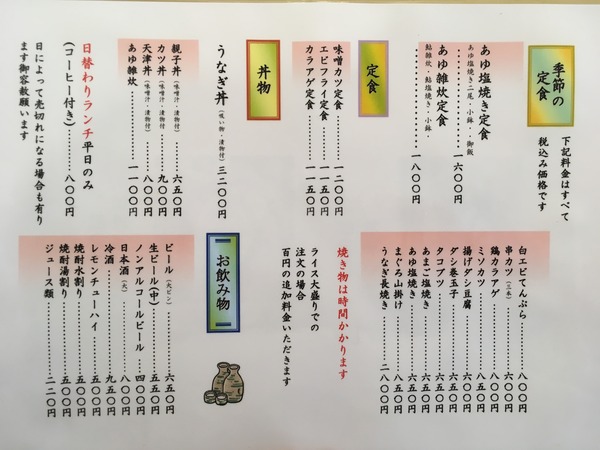 季節の
定食
下記料金はすべて
税込み価格です
あゆ塩焼き定食
あゆ塩焼き二尾・小鉢・・御飯
一六〇〇円
あゆ雑炊定食
鮎雑炊・鮎塩焼き・小鉢・
一八〇〇円
定食
味噌カツ定食 一二〇〇円
エビフライ定食 一一五〇円
カラアゲ定食 一一五〇円
丼物
うなぎ丼(吸い物・漬物付)三二〇〇円
親子丼(味噌汁・漬物付)六五〇円
カツ丼(味噌汁・漬物付)九〇〇円
天津丼(味噌汁・漬物付)八〇〇円
あゆ雑炊 一一〇〇円
日替わりランチ平日のみ
(コーヒー付き) 八〇〇円
日によって売切れになる場合も有り
ます御容赦願います
白エビてんぷら 八〇〇円
串カツ(三本) 六〇〇円
鶏カラアゲ 八〇〇円
ミソカツ 八五〇円
揚げダシ豆腐 六〇〇円
ダシ巻玉子 六五〇円
タコブツ 六五〇円
あまご塩焼き 六五〇円
あゆ塩焼き 六五〇円
まぐろ山掛け 八五〇円
うなぎ長焼き 二八〇〇円
焼き物は時間かかります
ライス大盛りでの
注文の場合
百円の追加料金いただきます
お飲み物
ビール(大ビン) 六五〇円
生ビール(中) 五五〇円
ノンアルコールビール 四〇〇円
日本酒(大) 八〇〇円
冷酒 九五〇円
レモンチューハイ 五〇〇円
焼酎水割り 五〇〇円
焼酎湯割り 五〇〇円
ジュース類 二二〇円